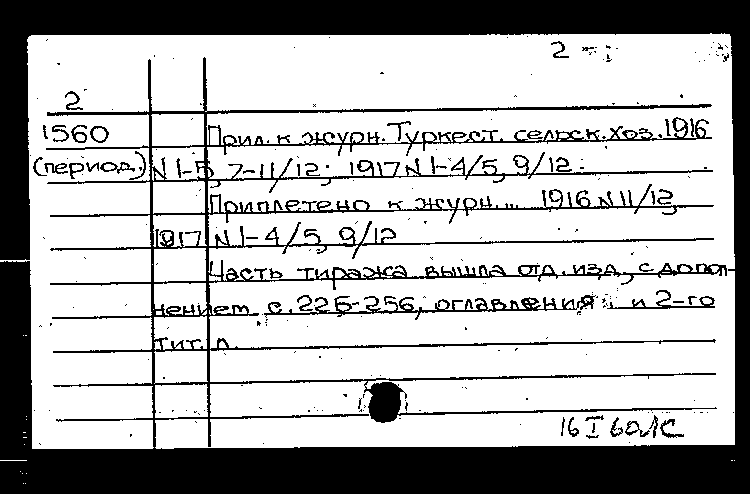 2
2
1560 Прил. к журн. Туркест. сельск. хоз. 1916
(период.) N 1-5, 7-11/12; 1917 N 1-4/5, 9/12.
Приплетено к журн... 1916 N 11/12,
1917 N 1-4/5, 9/12
Часть тиража вышла отд. изд., с допол-
нением с. 225-256, оглавления и 2-го
тит. л.
16 I 60 ЛС